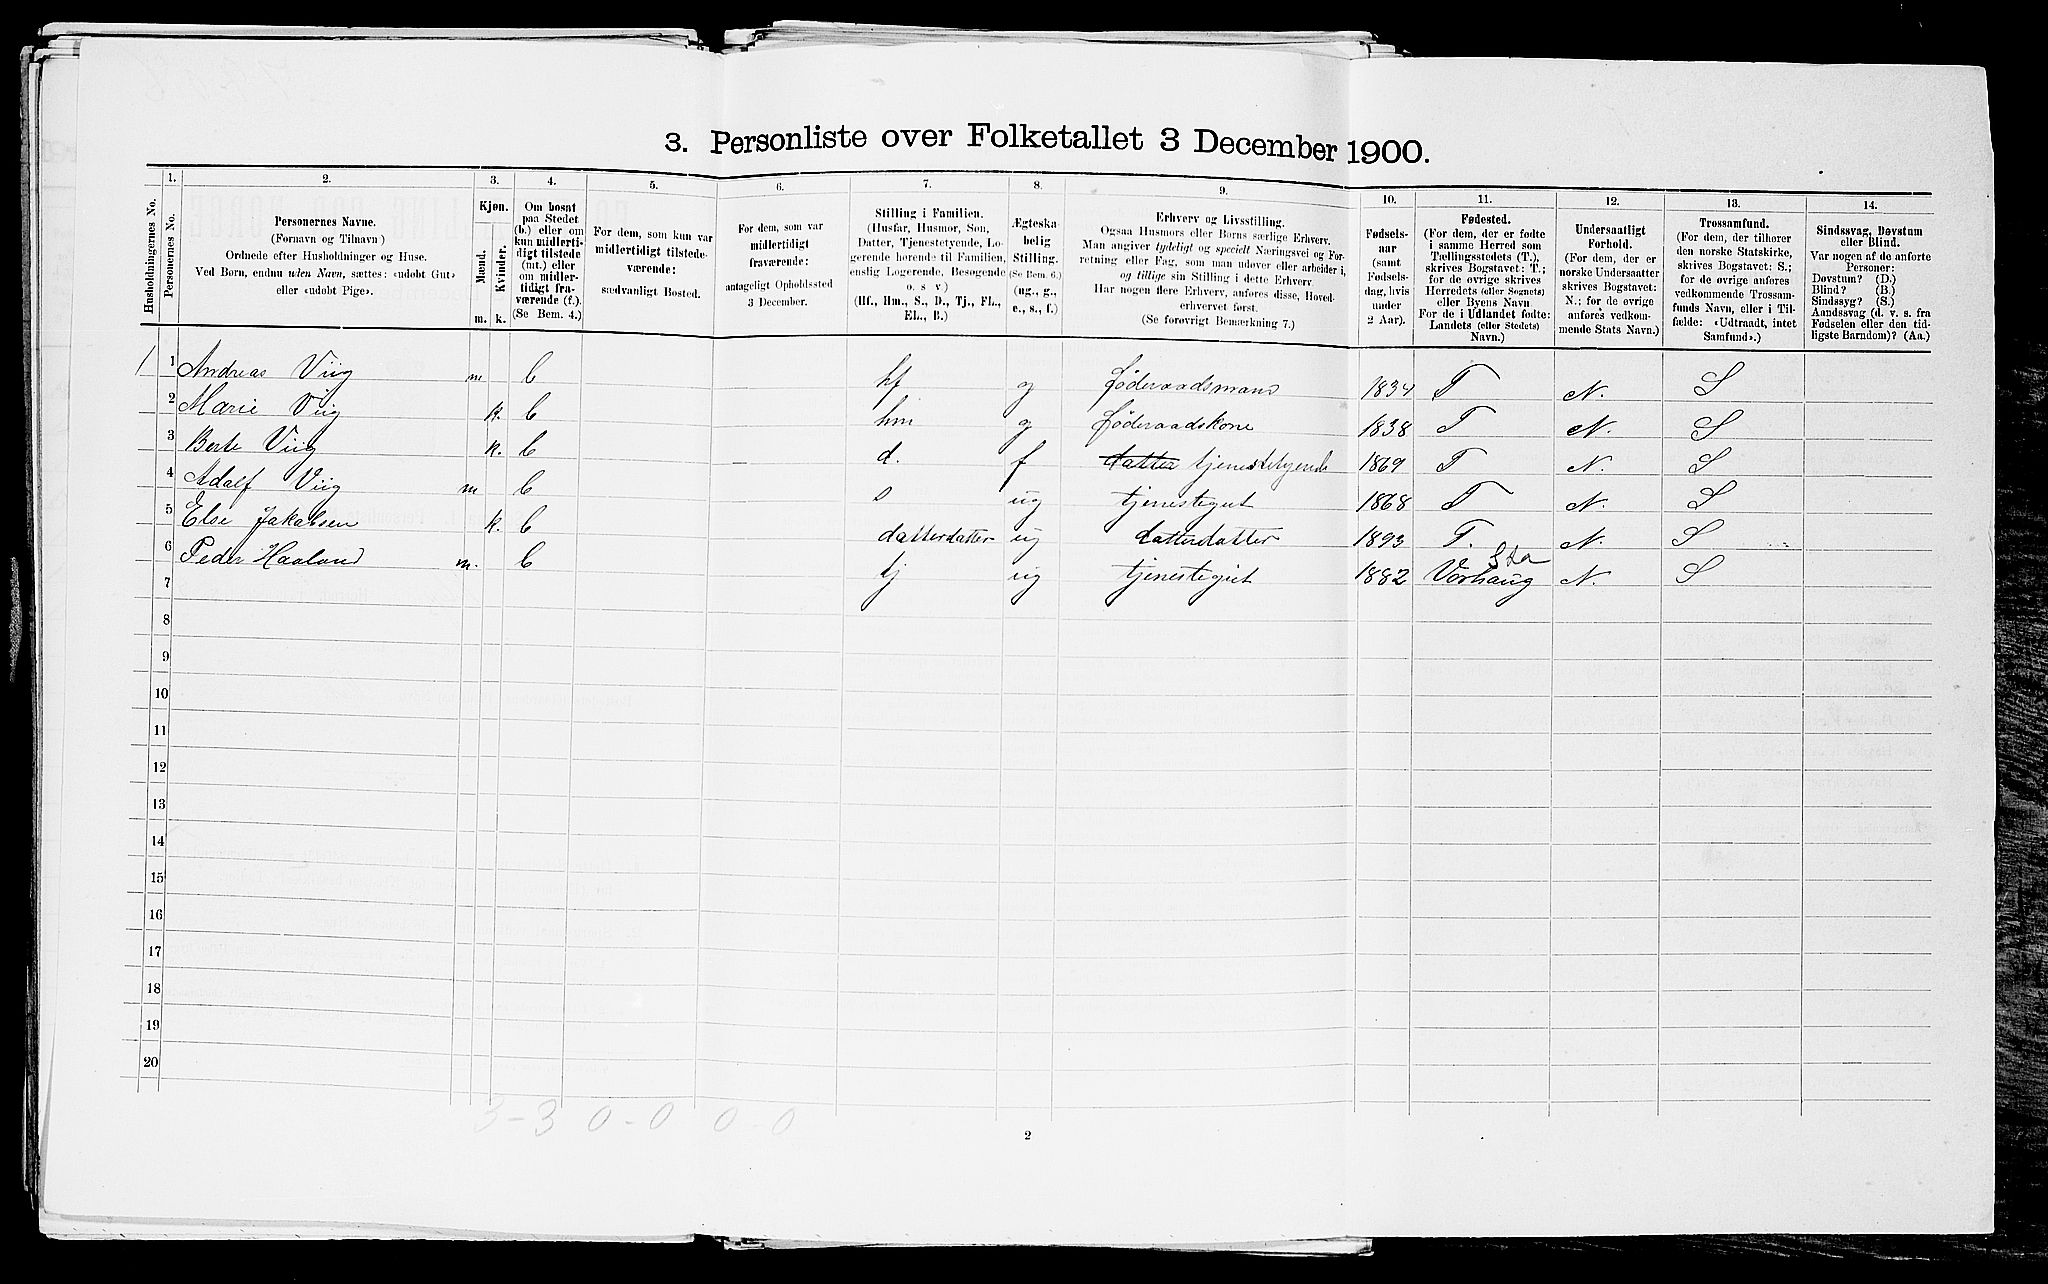 3. Personliste over Folketallet 3 December 1900.
1. 2. 3. 4. 5. 6. 7. 8. 9. 10. 11. 12. 13. 14.
Husholdningernes No.
Personernes No.
Personernes Navne.
(Fornavn og Tilnavn)
Ordnede efter Husholdninger og Huse.
Ved Børn, endnu uden Navn, sættes: «udøbt Gut»
eller «udøbt Pige».
Kjøn.
Mænd.
Kvinder.
m. k.
Om bosat
paa Stedet
(b.) eller om
kun midlerti-
digt tilstede
(mt.) eller
om midler-
tidigt fra-
værende (f.).
(Se Bem. 4.)
For dem, som kun var
midlertidigt tilstede-
værende:
sædvanligt Bosted.
For dem, som var
midlertidigt
fraværende:
antageligt Opholdssted
3 December.
Stilling i Familien.
(Husfar, Husmor, Søn,
Datter, Tjenestetyende, Lo-
gerende hørende til Familien,
enslig Logerende, Besøgende
o. s. v.)
(Hf., Hm., S., D., Tj., FL.,
EL., B.)
Ægteska-
belig
Stilling.
(Se Bem. 6.)
(ug., g.,
e., s., f.)
Erhverv og Livsstilling.
Ogsaa Husmors eller Børns særlige Erhverv.
Man angiver tydeligt og specielt Næringsvei og For-
retning eller Fag, som man udøver eller arbeider i,
og tillige sin Stilling i dette Erhverv.
Har nogen flere Erhverv, anføres disse, Hoved-
erhvervet først.
(Se forøvrigt Bemærkning 7.)
Fødsels-
aar
(samt
Fødsels-
dag, hvis
under
2 Aar).
Fødested.
(For dem, der er fødte
i samme Herred som
Tællingsstedets (T.),
skrives Bogstavet: T.;
for de øvrige skrives
Herredets (eller Sognets)
eller Byens Navn
For de i Udlandet fødte:
Landets (eller Stedets)
Navn.)
Undersaatligt
Forhold.
(For dem, der er
norske Undersaatter
skrives Bogstavet:
N.; for de øvrige
anføres vedkom-
mende Stats Navn.)
Trossamfund.
(For dem, der tilhører
den norske Statskirke,
skrives Bogstavet: S.;
for de øvrige anføres
vedkommende Trossam-
funds Navn, eller i Til-
fælde: «Udtraadt, intet
Samfund».)
Sindssvag, Døvstum
eller Blind.
Var nogen af de anførte
Personer:
Døvstum? (D.)
Blind? (B.)
Sindssyg? (S.)
Aandssvag (d. v. s. fra
Fødselen eller den tid-
ligste Barndom)? (Aa.)
1 1 Andreas Viig m b hf g føderaadsmand 1834 T N. S
2 Marie Viig k. b hm g føderaadskone 1838 T N. S
3 Berte Viig k. b d. f datter tjenestetyende 1869 T N. S
4 Adolf Viig m b s ug tjenestegut 1868 T N. S
5 Else Jakobsen k. b datterdatter ug datterdatter 1893 T. N. S
6 Peder Haaland m. b tj ug tjenestegut 1882 Varhaug Sta N S
7
8
9
10
11
12
13
14
15
16
17
18
19
20
3-3 0-0 0-0
2